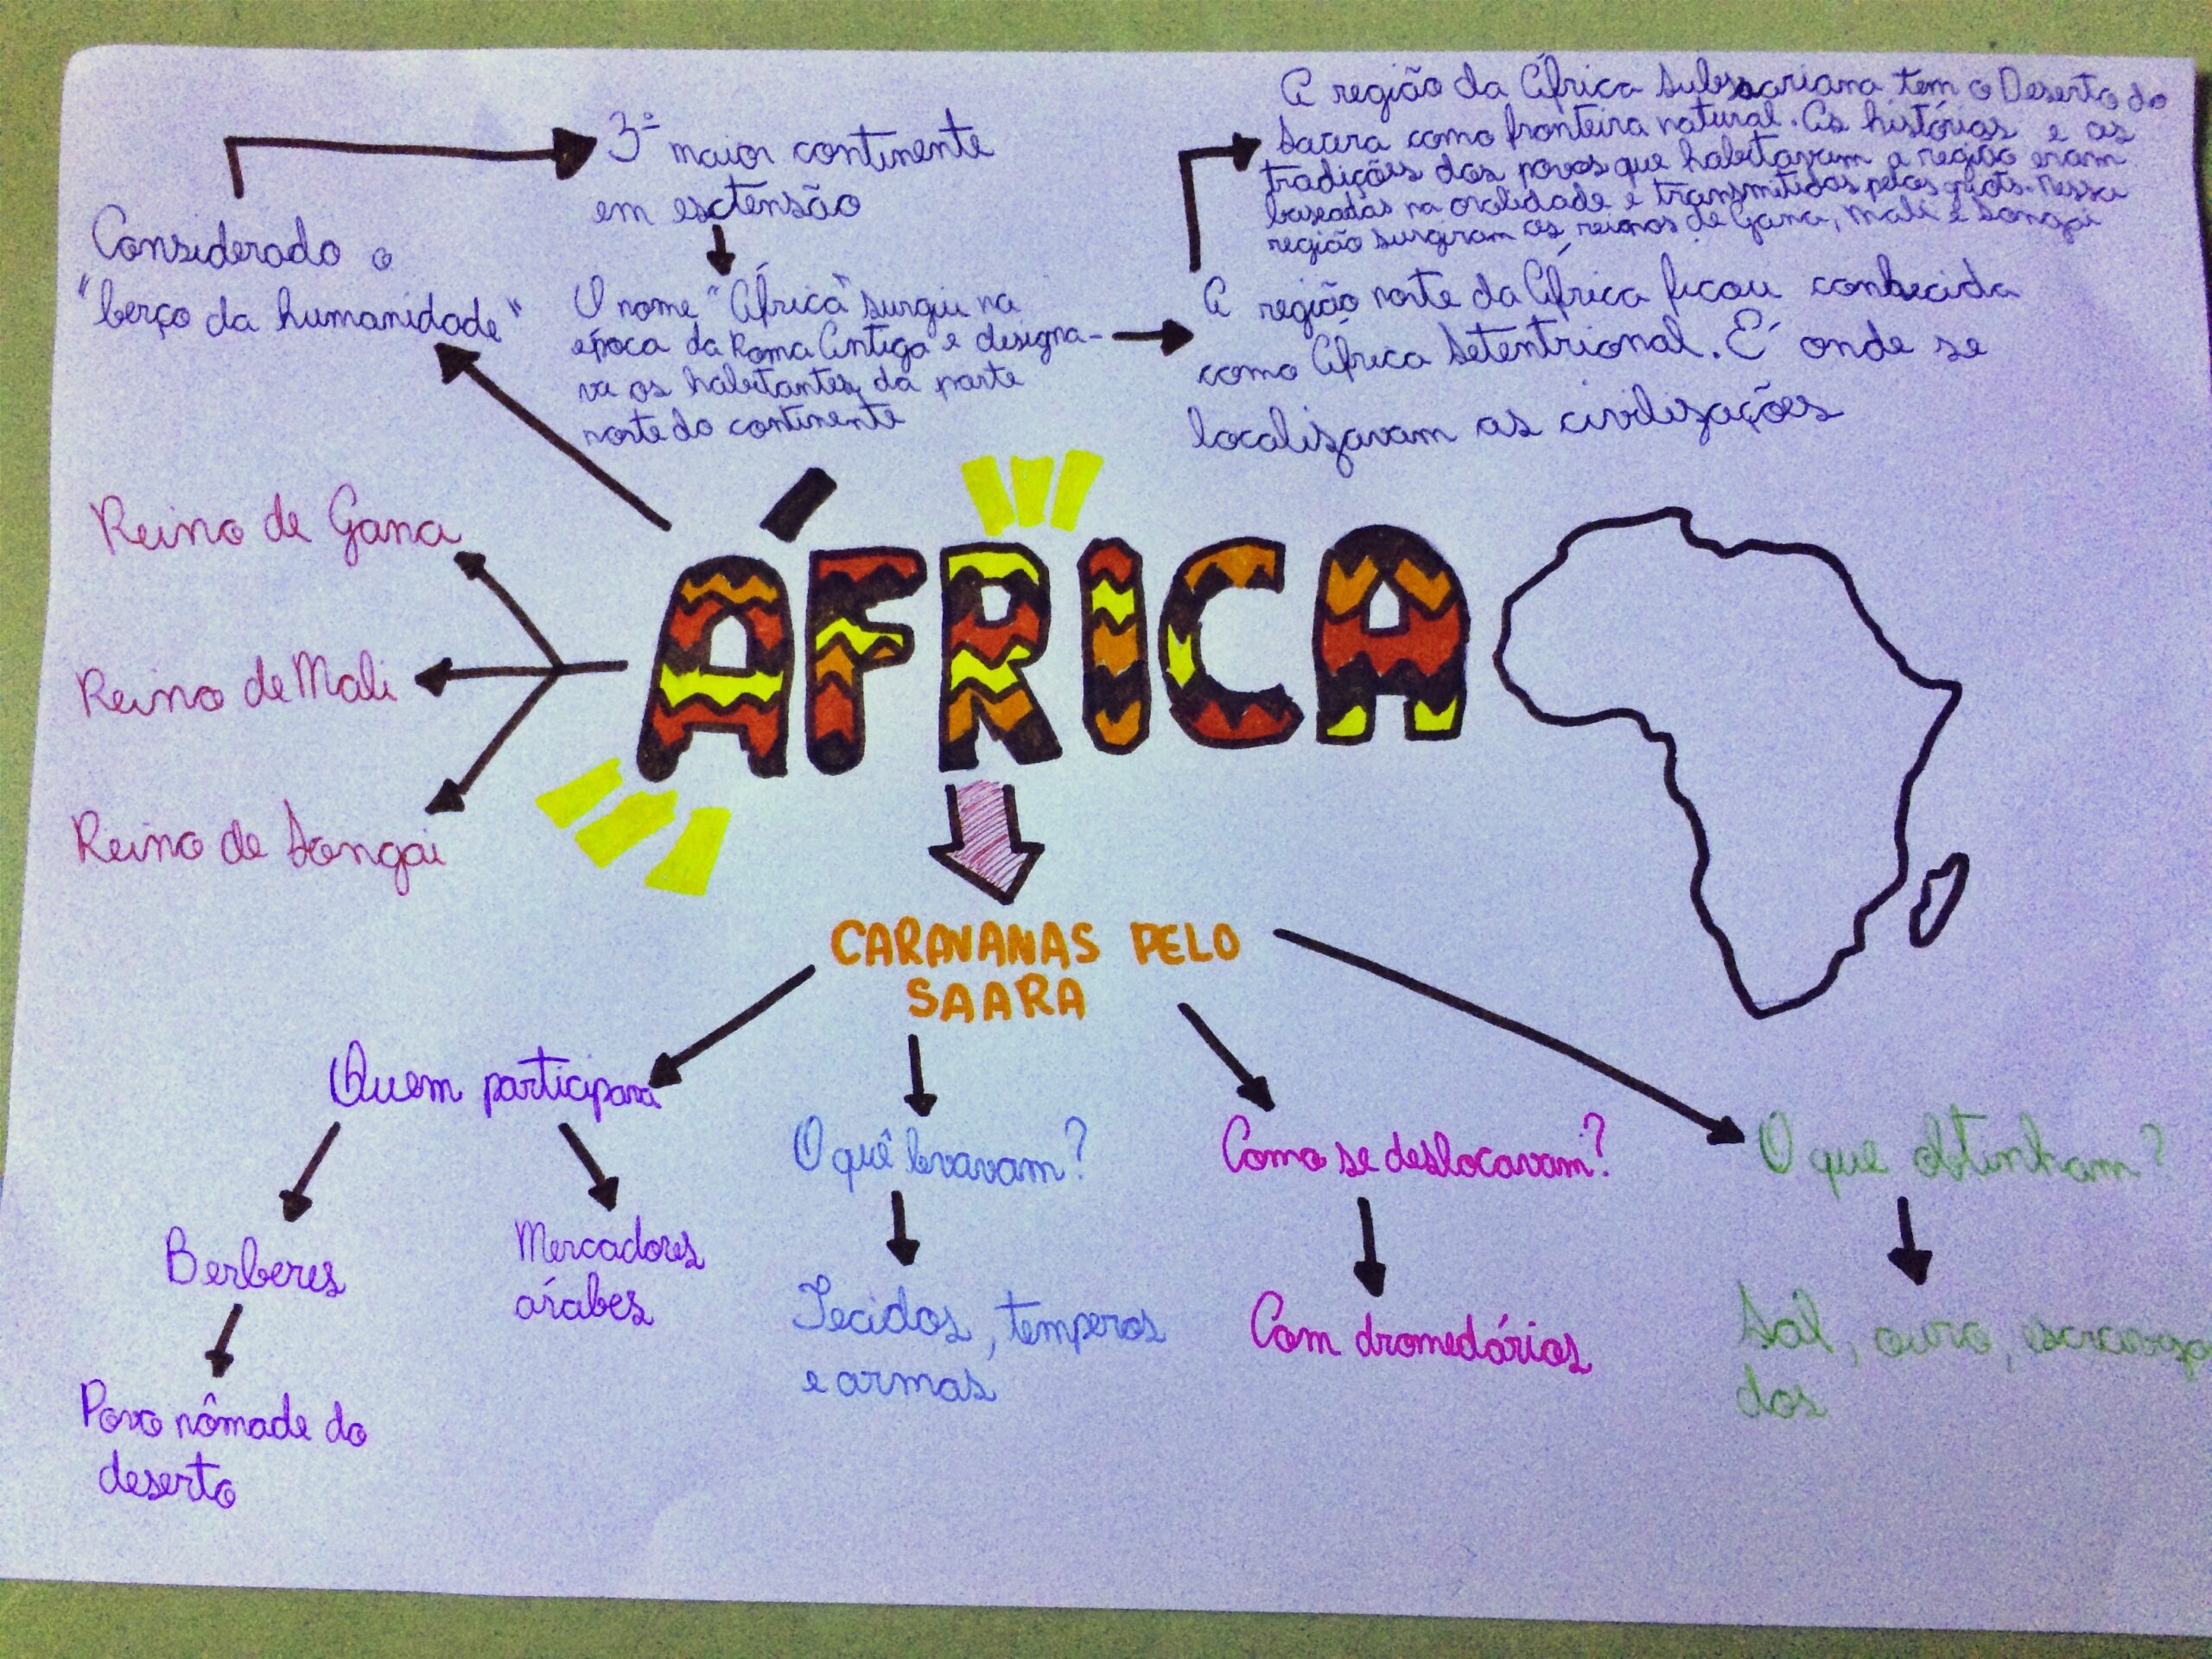 Considerado o
"berço da humanidade"
3º maior continente
em esctensão
O nome "África" surgiu na
época da Roma Antiga e designa-
va os habitantes da parte
norte do continente
A região norte da África ficou conhecida
como África Setentrional. É onde se
localizavam as civilizações
A região da África Subsaariana tem o Deserto do
Saara como fronteira natural. As histórias e as
tradições dos povos que habitavam a região eram
baseadas na oralidade e transmitidas pelos griots. Nessa
região surgiram os reinos de Gana, Mali e Songai
ÁFRICA
Reino de Gana
Reino de Mali
Reino de Songai
CARAVANAS PELO
SAARA
Quem participava
Berberes
Povo nômade do
deserto
Mercadores
árabes
O quê levavam?
Tecidos, temperos
e armas
Como se deslocavam?
Com dromedários
O que obtinham?
Sal, ouro, escraviza
dos